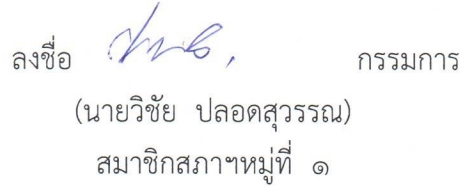 ลงชื่อ กรรมการ
(นายวิชัย ปลอดสุวรรณ)
สมาชิกสภาฯหมู่ที่ ๑